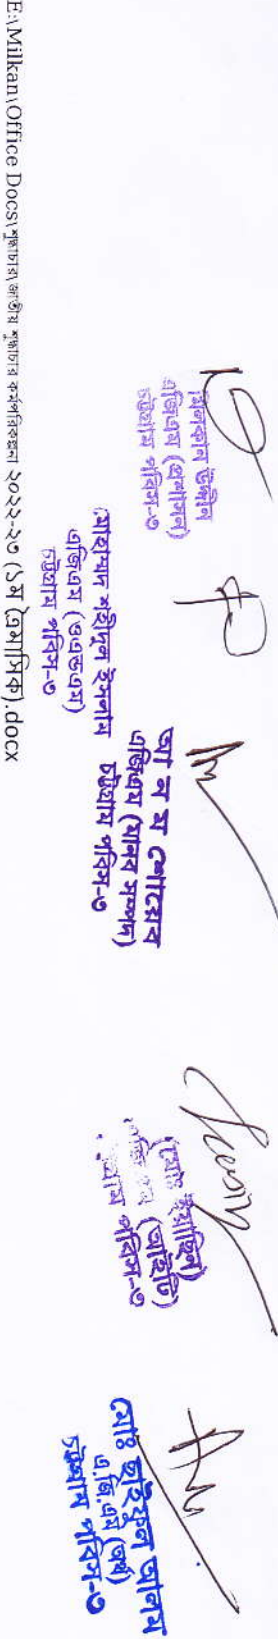 মিলকান উদ্দীন
এজিএম (প্রশাসন)
চট্টগ্রাম পবিস-৩
মোহাম্মদ শহীদুল ইসলাম
এজিএম (ওএন্ডএম)
চট্টগ্রাম পবিস-৩
আ ন ম শোয়েব
এজিএম (মানব সম্পদ)
চট্টগ্রাম পবিস-৩
(মোঃ ইয়াছিন)
(আইটি)
পবিস-৩
মোঃ ছাইফুল আলম
এ.জি.এম (অর্থ)
চট্টগ্রাম পবিস-৩
E:\Milkan\Office Docs\শুদ্ধাচার\জাতীয় শুদ্ধাচার কর্মপরিকল্পনা ২০২২-২৩ (১ম ত্রৈমাসিক).docx